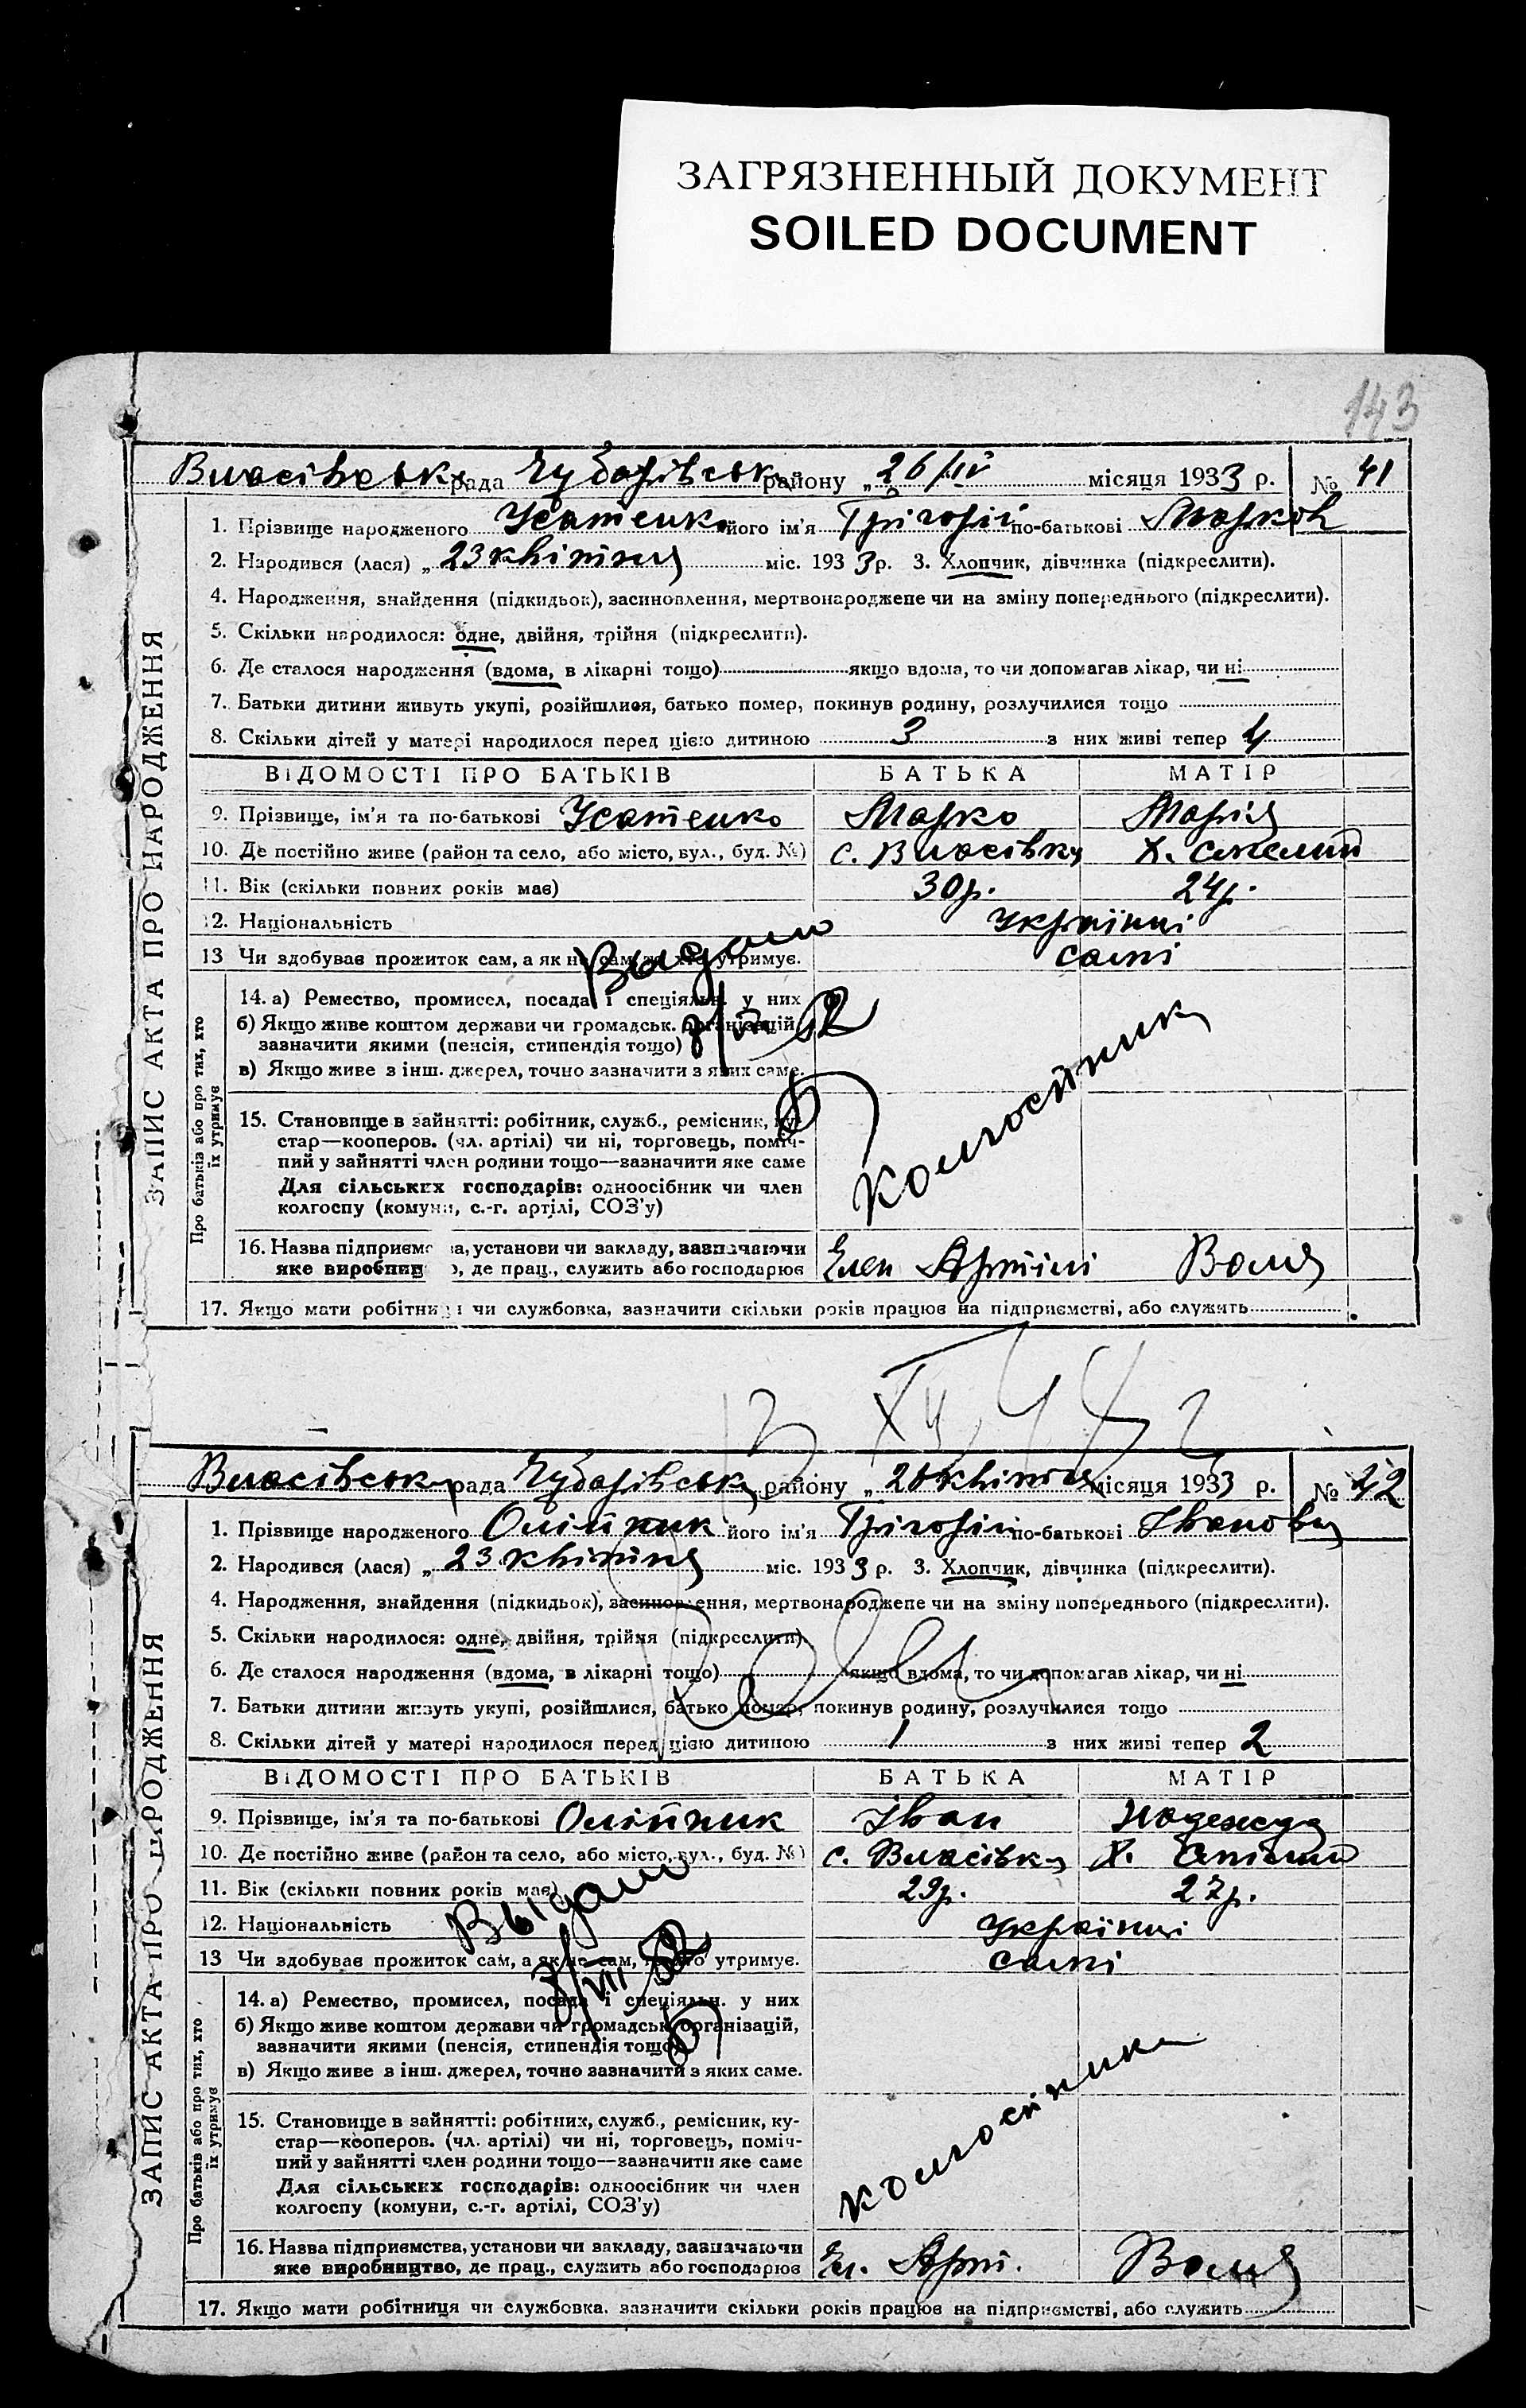 ЗАГРЯЗНЕННЫЙ ДОКУМЕНТ
SOILED DOCUMENT
143
ЗАПИС АКТА ПРО НАРОДЖЕННЯ
рада Чубарівськ району „26/IV місяця 1933 р. № 41
1. Прізвище народженого Усатенко його ім'я Григорій по-батькові Марков
2. Народився (лася) „23 квітня міс. 1933 р. 3. Хлопчик, дівчинка (підкреслити).
4. Народження, знайдення (підкидьок), засиновлення, мертвонароджене чи на зміну попереднього (підкреслити).
5. Скільки народилося: одне, двійня, трійня (підкреслити).
6. Де сталося народження (вдома, в лікарні тощо) якщо вдома, то чи допомагав лікар, чи ні
7. Батьки дитини живуть укупі, розійшлися, батько помер, покинув родину, розлучилися тощо
8. Скільки дітей у матері народилося перед цією дитиною 3 з них живі тепер 4
ВІДОМОСТІ ПРО БАТЬКІВ БАТЬКА МАТІР
9. Прізвище, ім'я та по-батькові Усатенко Марко Марія
10. Де постійно живе (район та село, або місто, вул., буд. №) с. Власівка х.
11. Вік (скільки повних років має) 30 р. 24 р.
12. Національність Українці
13 Чи здобував прожиток сам, а як не сам, то хто утримує. самі
Выдано
Про батьків або про тих, хто їх утримує
14. а) Ремество, промисел, посада і спеціяльн. у них
б) Якщо живе коштом держави чи громадськ. організацій,
зазначити якими (пенсія, стипендія тощо)
в) Якщо живе з інш. джерел, точно зазначити з яких саме.
15. Становище в зайнятті: робітник, служб., ремісник, ку-
стар—кооперов. (чл. артілі) чи ні, торговець, поміч-
ний у зайнятті член родини тощо—зазначити яке саме
Для сільських господарів: одноосібник чи член
колгоспу (комуни, с.-г. артілі, СОЗ'у)
16. Назва підприємства, установи чи закладу, зазначаючи
яке виробництво, де прац., служить або господарює Член Артілі Воля
17. Якщо мати робітниця чи службовка, зазначити скільки років працює на підприємстві, або служить
ЗАПИС АКТА ПРО НАРОДЖЕННЯ
Власівська рада Чубарівськ району „26 квітня місяця 1933 р. № 42
1. Прізвище народженого Олійник його ім'я Григорій по-батькові Іванов
2. Народився (лася) „23 квітня міс. 1933 р. 3. Хлопчик, дівчинка (підкреслити).
4. Народження, знайдення (підкидьок), засиновлення, мертвонароджене чи на зміну попереднього (підкреслити).
5. Скільки народилося: одне, двійня, трійня (підкреслити).
6. Де сталося народження (вдома, в лікарні тощо) якщо вдома, то чи допомагав лікар, чи ні
7. Батьки дитини живуть укупі, розійшлися, батько помер, покинув родину, розлучилися тощо
8. Скільки дітей у матері народилося перед цією дитиною 1 з них живі тепер 2
ВІДОМОСТІ ПРО БАТЬКІВ БАТЬКА МАТІР
9. Прізвище, ім'я та по-батькові Олійник Іван Надежда
10. Де постійно живе (район та село, або місто, вул., буд. №) с. Власівка х.
11. Вік (скільки повних років має) 29 р. 27 р.
12. Національність Українці
13 Чи здобував прожиток сам, а як не сам, то хто утримує. самі
Выдано
Про батьків або про тих, хто їх утримує
14. а) Ремество, промисел, посада і спеціяльн. у них
б) Якщо живе коштом держави чи громадськ. організацій,
зазначити якими (пенсія, стипендія тощо)
в) Якщо живе з інш. джерел, точно зазначити з яких саме.
15. Становище в зайнятті: робітник, служб., ремісник, ку-
стар—кооперов. (чл. артілі) чи ні, торговець, поміч-
ний у зайнятті член родини тощо—зазначити яке саме
Для сільських господарів: одноосібник чи член
колгоспу (комуни, с.-г. артілі, СОЗ'у)
16. Назва підприємства, установи чи закладу, зазначаючи
яке виробництво, де прац., служить або господарює Чл. Арт. Воля
17. Якщо мати робітниця чи службовка, зазначити скільки років працює на підприємстві, або служить